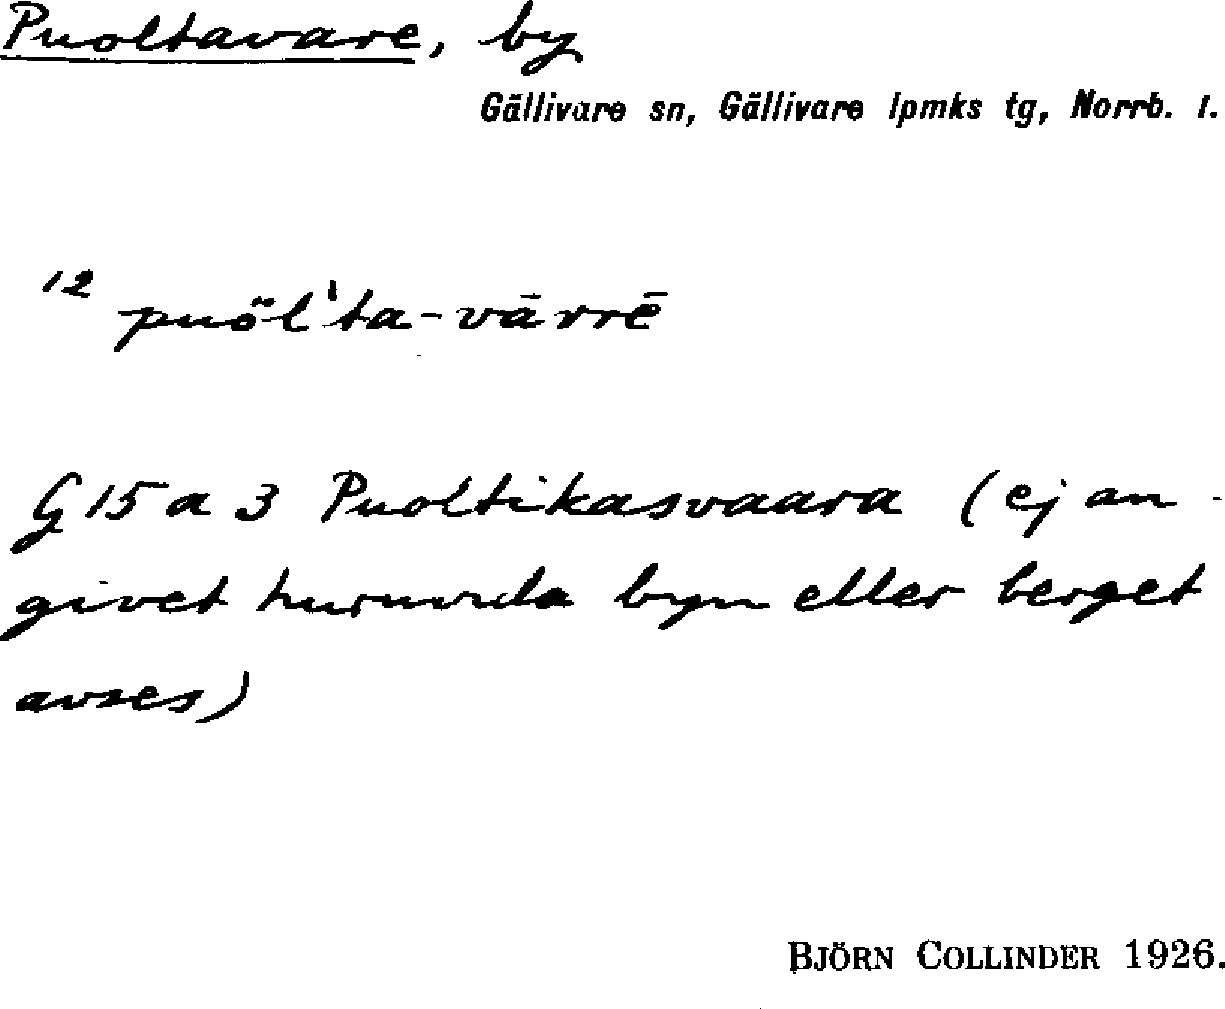 Puoltavare, by
Gällivare sn, Gällivare lpmks tg, Norrb. l.
12 puöl'ta-vārrē
G 15 a 3 Puoltikasvaara (ej an-
givet huruvida byn eller berget
avses)
BJÖRN COLLINDER 1926.